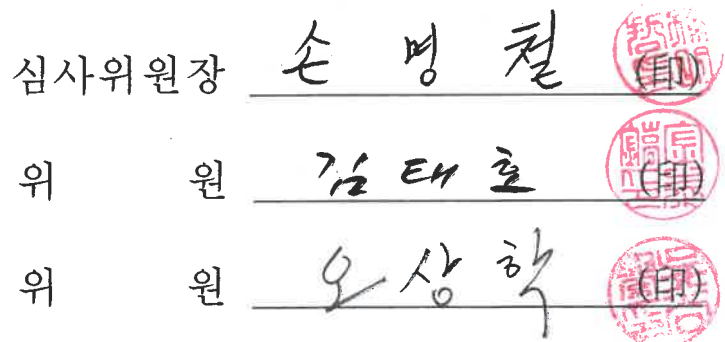 심사위원장 손 명 철 (印)
위 원 김 태 호 (印)
위 원 오 상 학 (印)